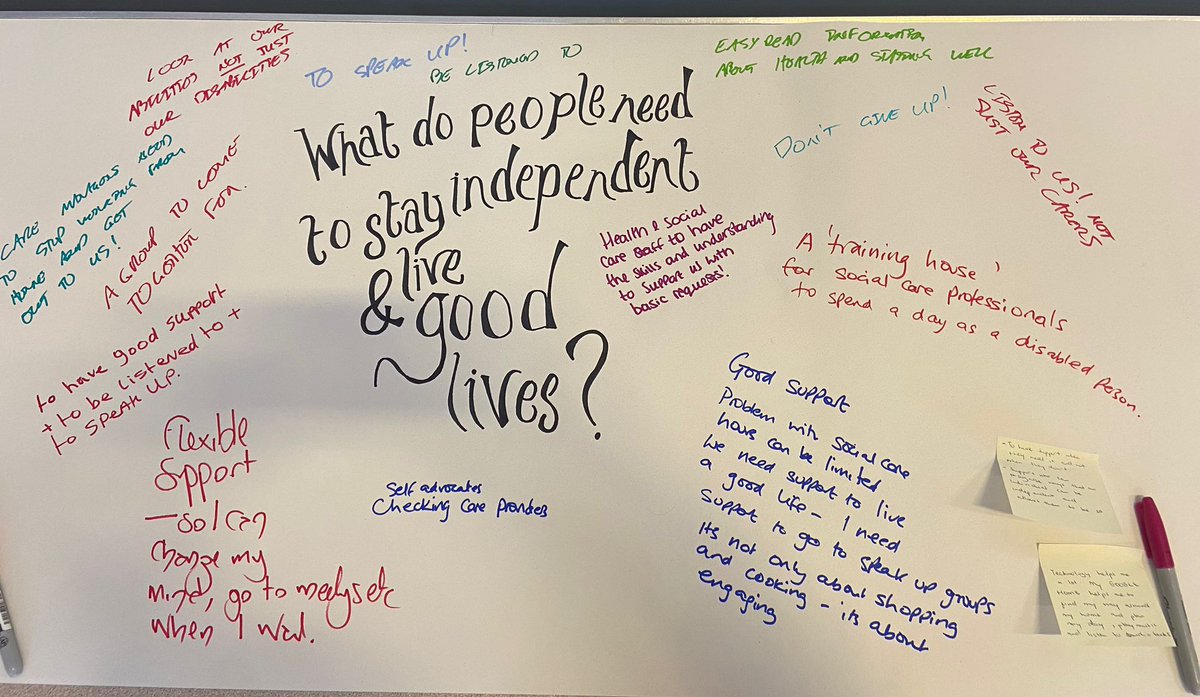 LOOK AT OUR
ABILITIES NOT JUST
OUR DISABILITIES
TO SPEAK UP!
BE LISTENED TO
EASY READ INFORMATION
ABOUT HEALTH AND STAYING WELL
What do people need
to stay independent
& live
good
lives?
DON'T GIVE UP!
LISTEN TO US! NOT
JUST OUR CARERS
CARE MANAGERS NEED
TO STOP WORKING FROM
HOME AND GET
OUT TO US!
A GROUP TO COME
TOGETHER FOR.
to have good support
+ to be listened to +
to speak up.
Health & Social
care staff to have
the skills and understanding
to support us with
basic requests!
A 'training house'
for social care professionals
to spend a day as a disabled person.
Flexible
Support
– so I can
change my
mind, go to
when I want.
Self advocates
Checking Care Providers
Good support
Problem with social care
hours can be limited
We need support to live
a good life – I need
support to go to speak up groups
Its not only about shopping
and cooking – its about
engaging
Technology helps me
a lot. My Google
Home helps me to
find my way around
my home and plan
my day, play music
and listen to